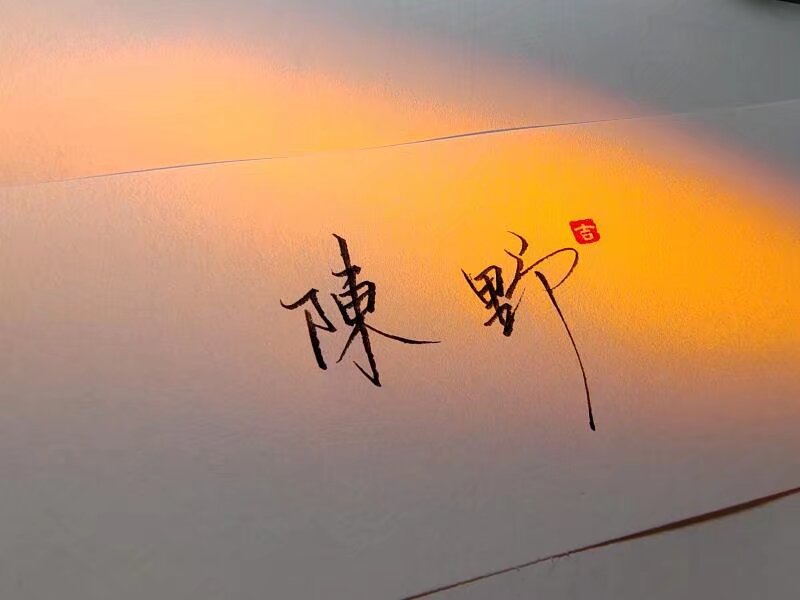 陳野
吉